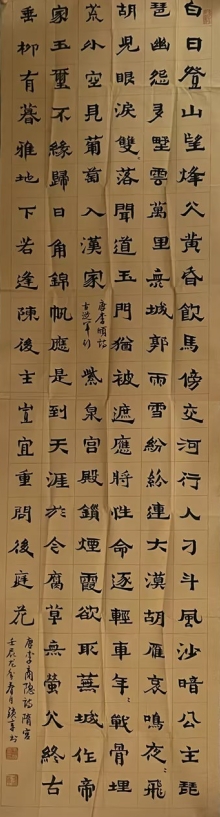 白日登山望烽火黃昏飲馬傍交河行人刁斗風沙暗公主琵
琶幽怨多野雲萬里無城郭雨雪紛紛連大漠胡雁哀鳴夜〻飛
胡兒眼淚雙〻落聞道玉門猶被遮應將性命逐輕車年〻戰骨埋
荒外空見葡萄入漢家
唐李頎詩
古從軍行
紫泉宮殿鎖煙霞欲取蕪城作帝
家玉璽不緣歸日角錦帆應是到天涯於今腐草無螢火終古
垂柳有暮雅地下若逢陳後主豈宜重問後庭花
唐李商隱詩隋宮
壬辰